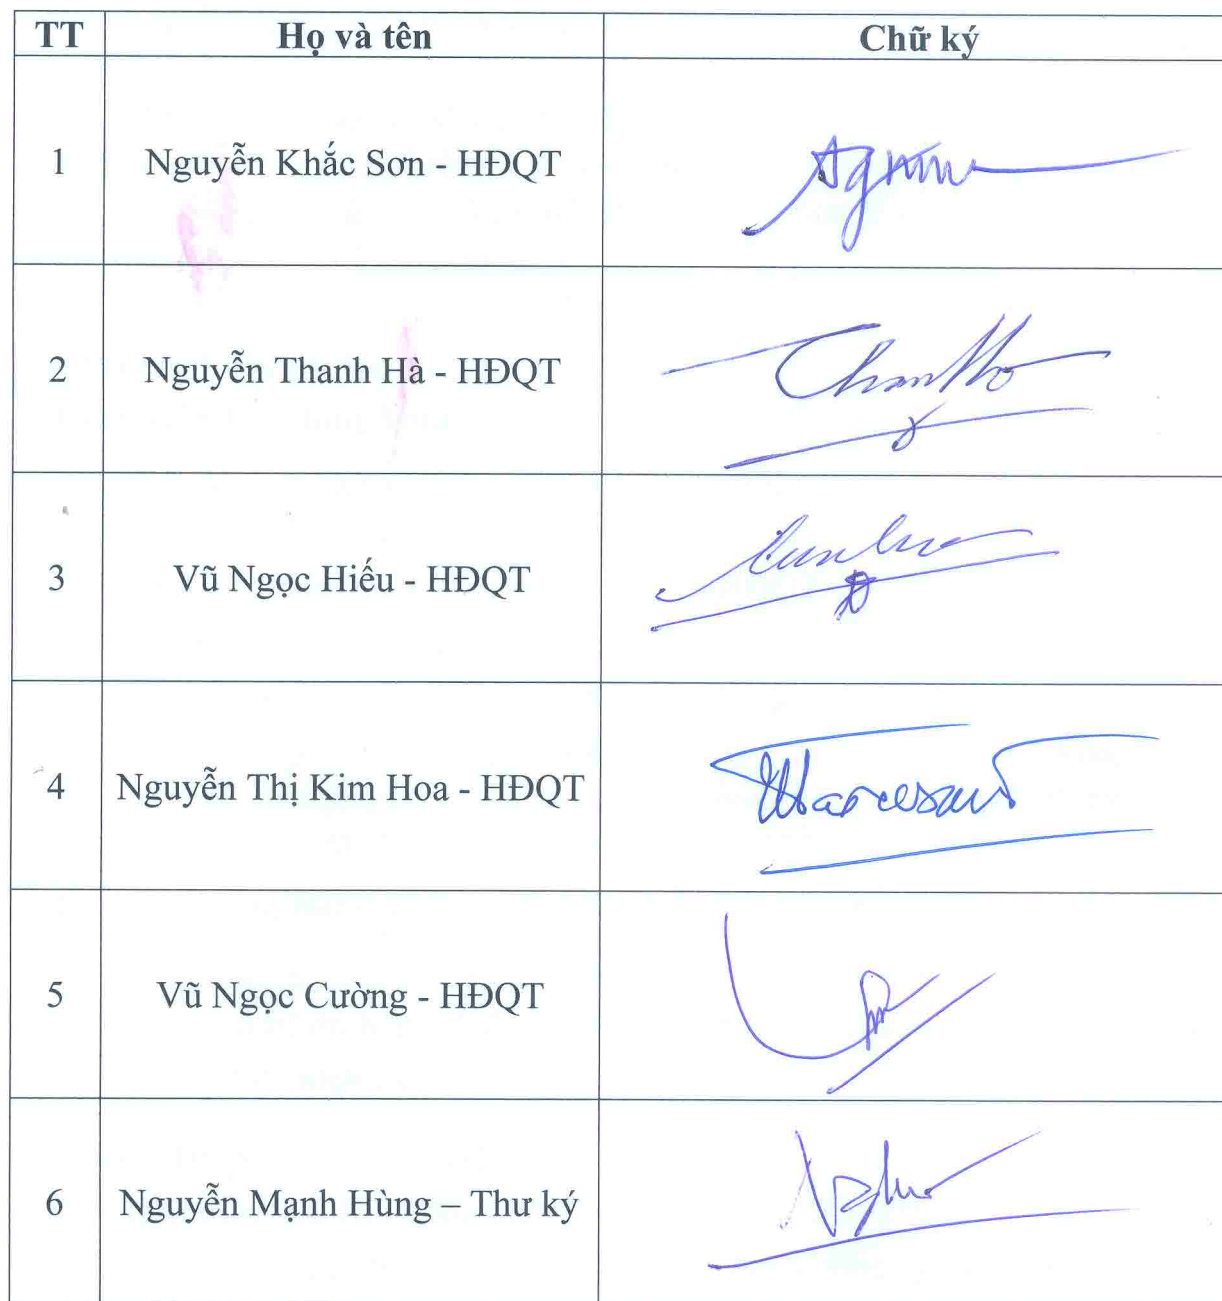 TT Họ và tên Chữ ký
1 Nguyễn Khắc Sơn - HĐQT
2 Nguyễn Thanh Hà - HĐQT
3 Vũ Ngọc Hiếu - HĐQT
4 Nguyễn Thị Kim Hoa - HĐQT
5 Vũ Ngọc Cường - HĐQT
6 Nguyễn Mạnh Hùng – Thư ký